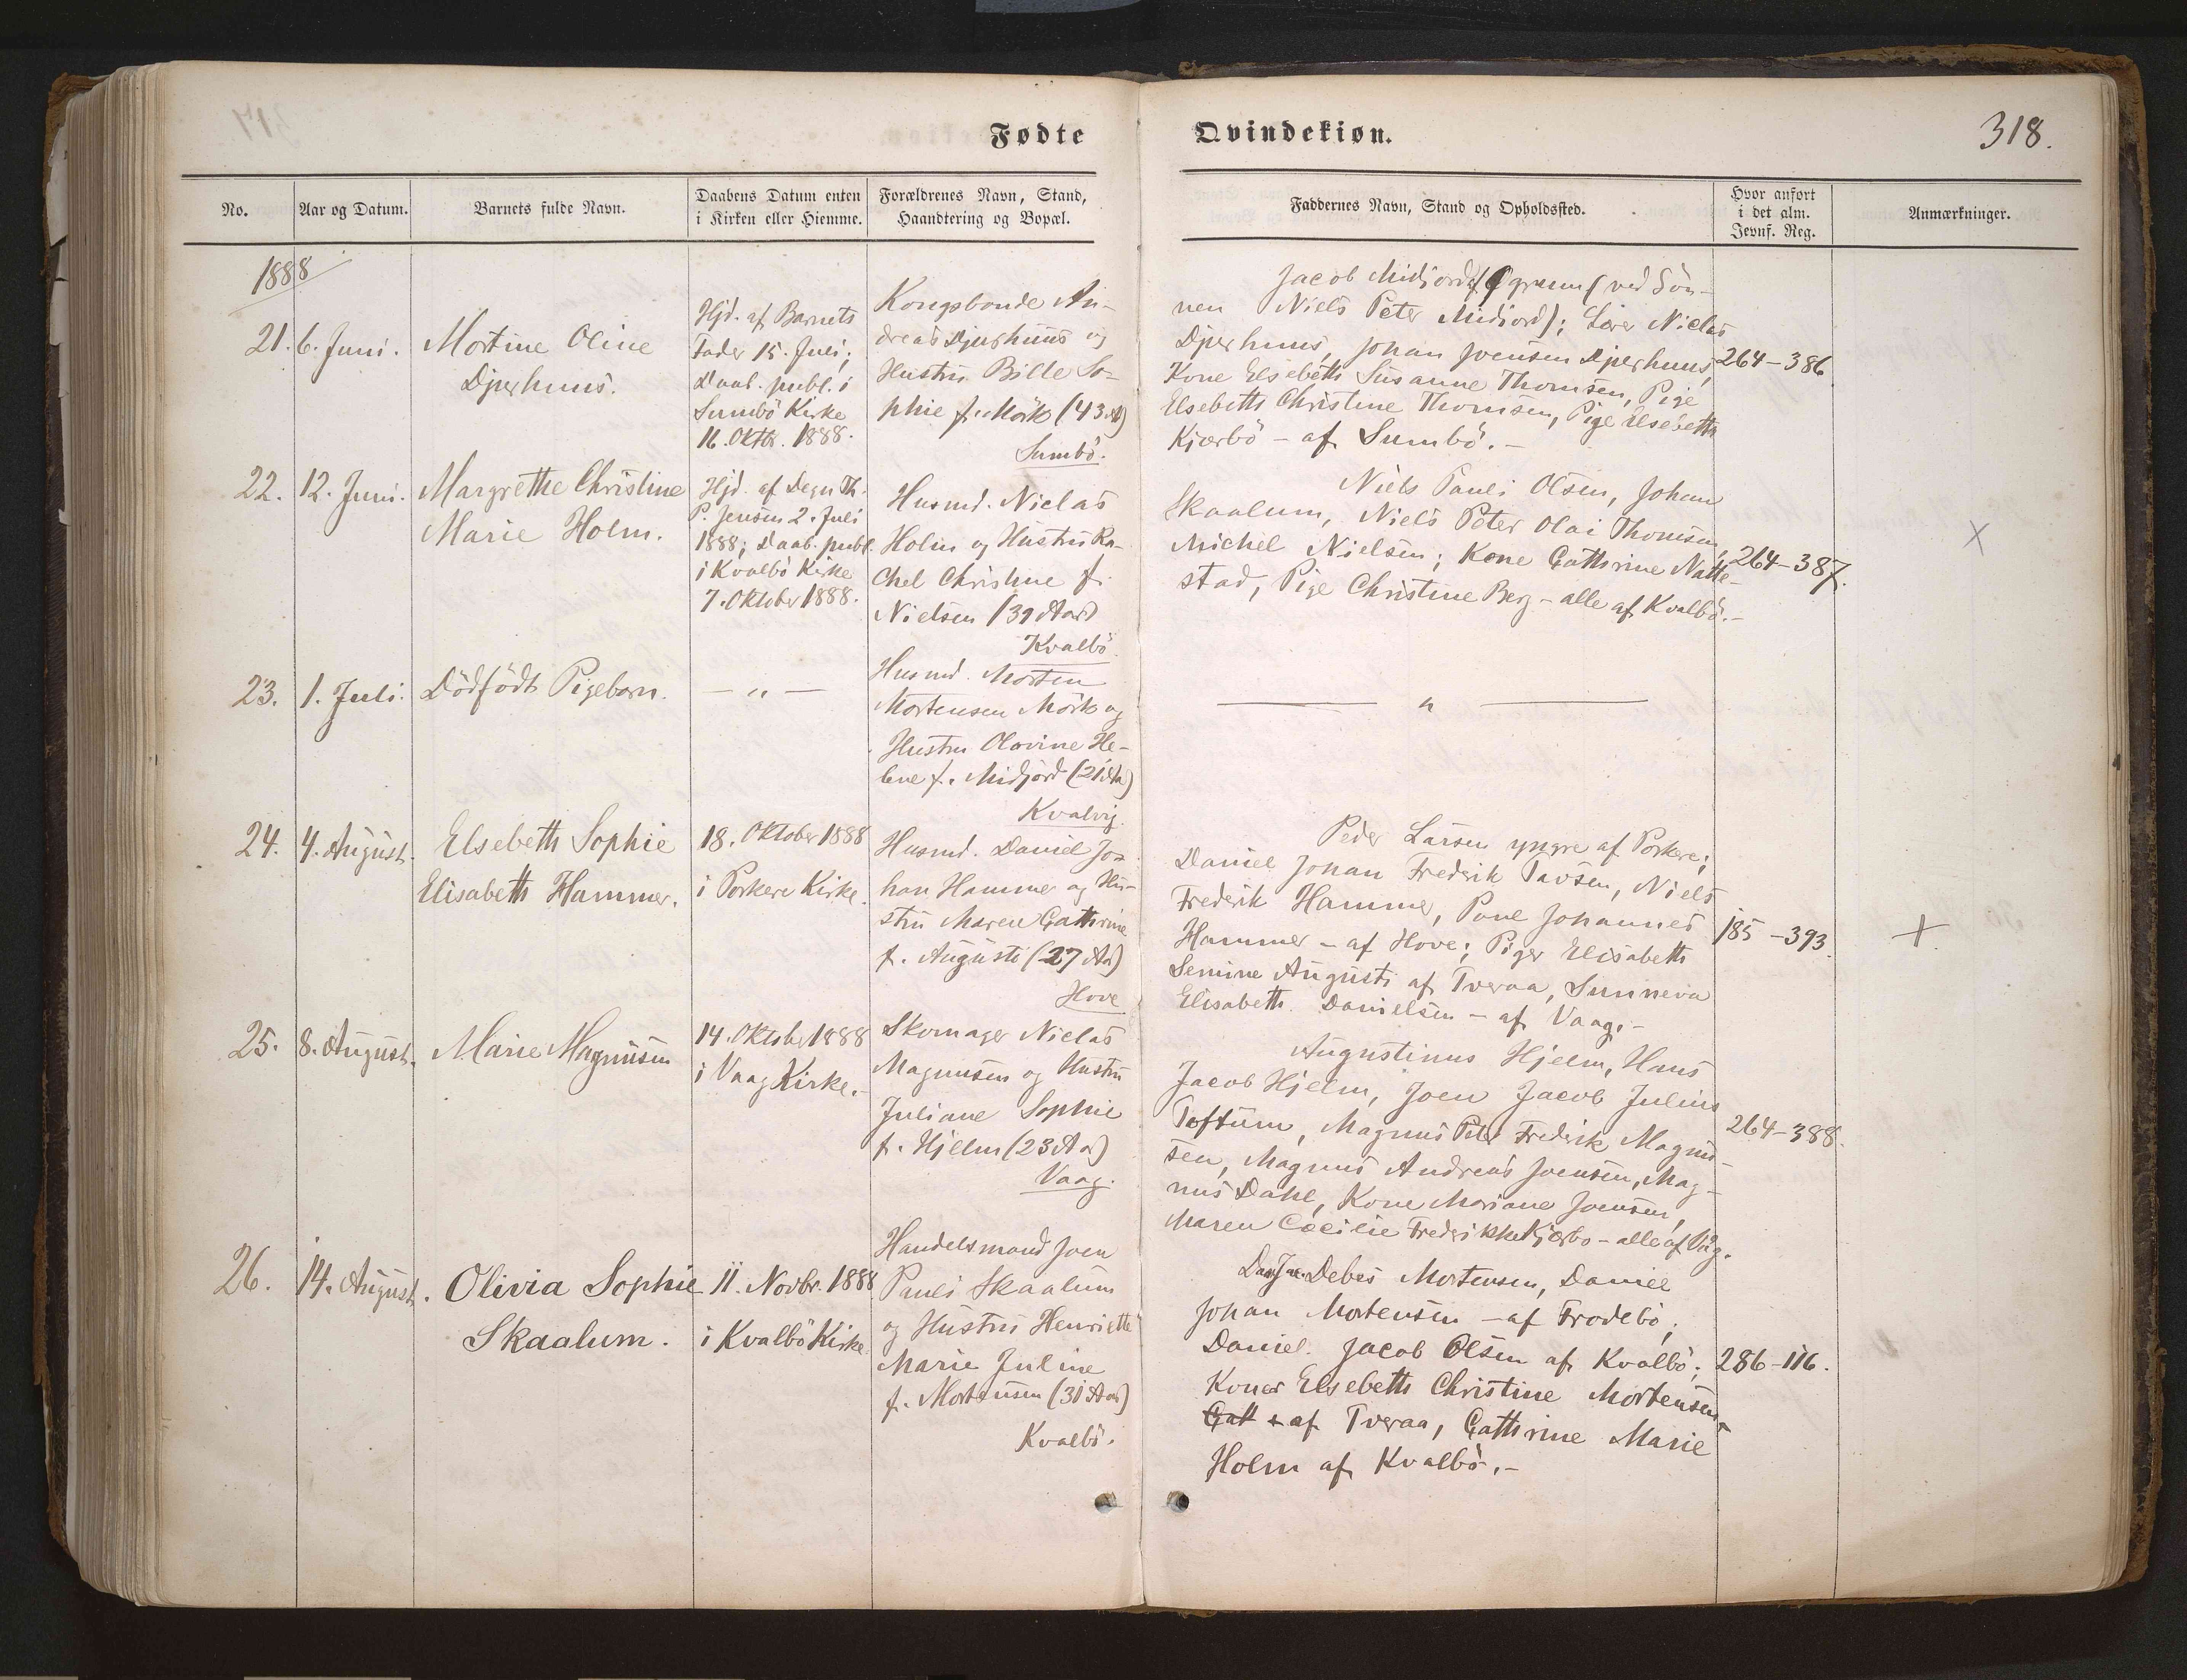 Fødte
Qvindekiøn.
318.
No.
Aar og Datum.
Barnets fulde Navn.
Daabens Datum enten
i Kirken eller Hiemme.
Forældrenes Navn, Stand,
Haandtering og Bopæl.
Faddernes Navn, Stand og Opholdssted.
Hvor anført
i det alm.
Jevnf. Reg.
Anmærkninger.
1888
21.
6. Juni.
Mortine Oline
Djurhuus.
Hjd. af Barnets
Fader 15. Juli;
Daab. publ. i
Sumbö Kirke
16. Oktbr. 1888.
Kongsbonde An-
dreas Djurhuus og
Hustru Bille So-
phie f. Mörk (43 A)
Sumbö.
Jacob Midjord (ved Sön-
nen Niels Peter Midjord); Lærer Niclas
Djurhuus, Johan Joensen Djurhuus,
Kone Elsebeth Susanne Thomsen, Pige
Elsebeth Christine Thomsen, Pige Elsebeth
Kjærbö - af Sumbö. -
264-386
22.
12. Juni.
Margrethe Christine
Marie Holm.
Hjd. af Degn Th.
P. Jensen 2. Juli
1888; Daab. publ.
i Kvalbö Kirke
7. Oktober 1888.
Husmd. Niclas
Holm og Hustru Ra-
chel Christine f.
Nielsen (39 Aar)
Kvalbö.
Niels Pauli Olsen, Johan
Skaalum, Niels Peter Olai Thomsen,
Michel Nielsen; Kone Cathrine Natte-
stad, Pige Christine Berg - alle af Kvalbö. -
264-387.
X
23.
1. Juli.
Dödfödt Pigebarn.
— „ —
Husmd. Morten
Mortensen Mörk og
Hustru Olavine He-
lene f. Midjord (21 Aa)
Kvalvig.
— „ —
24.
4. August.
Elsebeth Sophie
Elisabeth Hammer.
18. Oktober 1888
i Porkere Kirke.
Husmd. Daniel Jo-
han Hammer og Hu-
stru Maren Cathrine
f. Augusti (27 Aa)
Hove
Peder Larsen yngre af Porkere;
Daniel Johan Frederik Pavsen, Niels
Frederik Hammer, Poul Johannes
Hammer - af Hove; Piger Elisabeth
Semine Augusti af Tveraa, Sunneva
Elisabeth Danielsen - af Vaag. -
185-393.
+
25.
8. August.
Marie Magnusen
14. Oktober 1888
i Vaag Kirke. -
Skomager Niclas
Magnusen og Hustru
Juliane Sophie
f. Hjelm (23 Aa)
Vaag.
Augustinus Hjelm, Hans
Jacob Hjelm, Joen Jacob Julius
Toftum, Magnus Peter Frederik Magnu-
sen, Magnus Andreas Joensen, Mag-
nus Dahl, Kone Mariane Joensen,
Maren Cecilie Frederikke Kjærbo - alle af Våg.
264-388.
26.
14. August.
Olivia Sophie
Skaalum.
11. Novbr. 1888
i Kvalbö Kirke.
Handelsmand Joen
Pauli Skaalum
og Hustru Henriette
Marie Juline
f. Mortensen (31 Aar)
Kvalbö.
Debes Mortensen, Daniel
Johan Mortensen - af Frodebö;
Daniel Jacob Olsen af Kvalbö;
Koner Elsebeth Christine Mortensen
Cath af Tveraa, Cathrine Marie
Holm af Kvalbö. -
286-116.